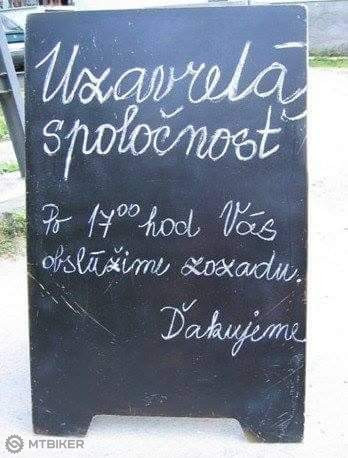 Uzavretá
spoločnosť
Po 17⁰⁰ hod Vás
obslúžime zozadu.
Ďakujeme
MTBIKER